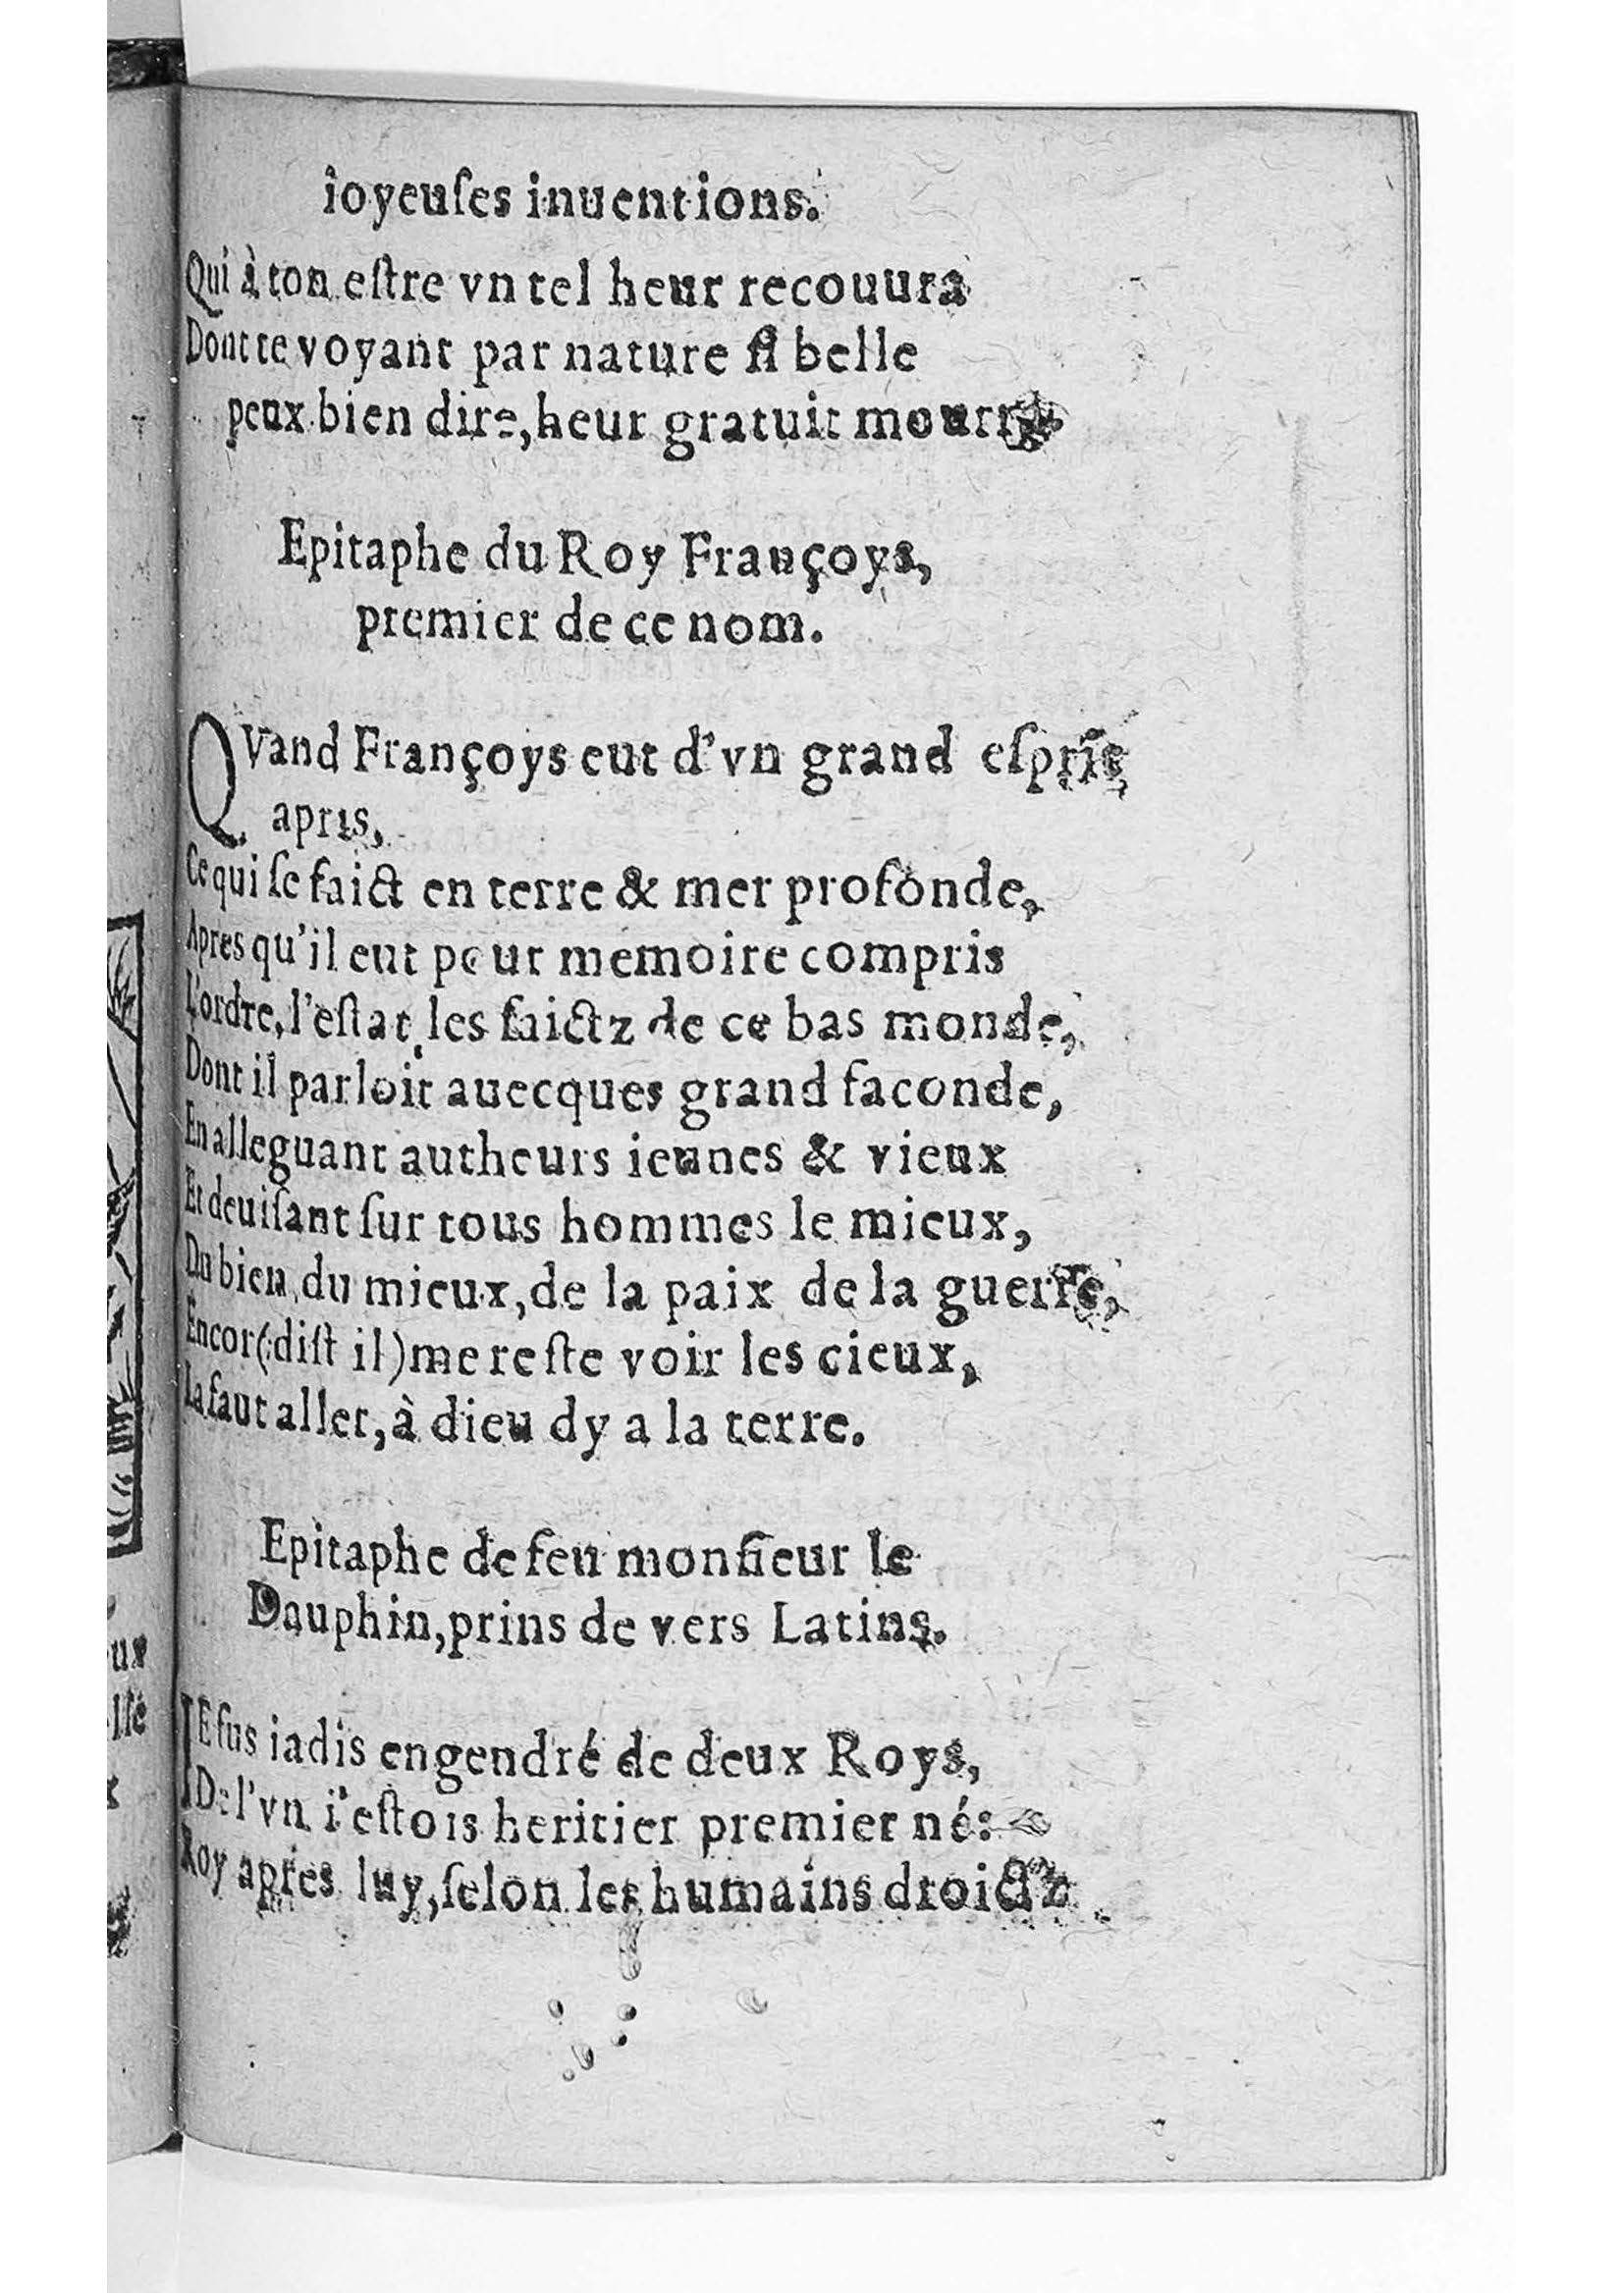 ioyeuſes inuentions.
Qui à ton eſtre vn tel heur recouura
Dont te voyant par nature ſi belle
peux bien dire, heur gratuit mourra
Epitaphe du Roy Françoys,
premier de ce nom.
QVand Françoys eut d'vn grand eſprit
apris,
Ce qui ſe faict en terre & mer profonde,
Apres qu'il eut pour memoire compris
L'ordre, l'eſtat, les faictz de ce bas monde,
Dont il parloit auecques grand faconde,
En alleguant autheurs ieunes & vieux
Et deuiſant ſur tous hommes le mieux,
Du bien, du mieux, de la paix de la guerre,
Encor (diſt il) me reſte voir les cieux,
La faut aller, à dieu dy a la terre.
Epitaphe de feu monſieur le
Dauphin, prins de vers Latins.
IE fus iadis engendré de deux Roys,
De l'vn i'eſtois heritier premier né:
Roy apres luy, ſelon les humains droictz
ux
lle
x